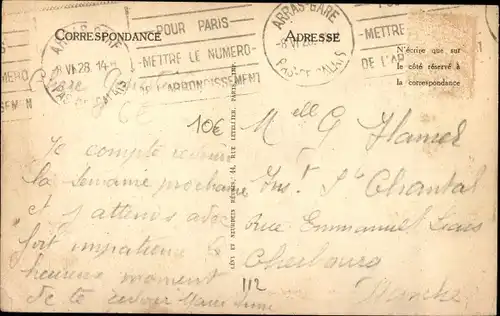 CORRESPONDANCE
ADRESSE
ARRAS-GARE
8 VI 28. 14
PAS DE CALAIS
POUR PARIS
METTRE LE NUMERO
DE L'ARRONDISSEMENT
ARRAS-GARE
8 VI 28
PAS DE CALAIS
METTRE
DE L'AR
N'écrire que sur
le côté réservé à
la correspondance
LÉVY ET NEURDEIN RÉUNIS, 44, RUE LETELLIER, PARIS. IMP.
10€
Je compte revenir
la semaine prochaine
et j'attends avec
fort impatience le
heureux moment
de te revoir
Melle G Hamel
Inst Ste Chantal
Rue Emmanuel Liais
Cherbourg
Manche
112